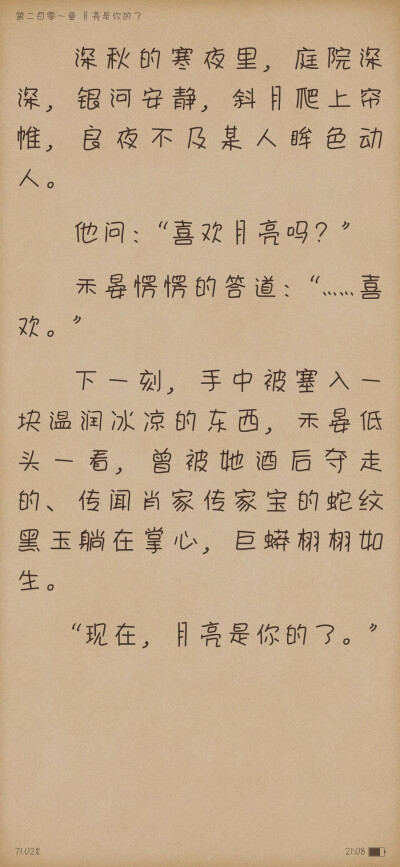 第二百零一章 月亮是你的了
深秋的寒夜里，庭院深
深，银河安静，斜月爬上帘
帷，良夜不及某人眸色动
人。
他问：“喜欢月亮吗？”
禾晏愣愣的答道：“……喜
欢。”
下一刻，手中被塞入一
块温润冰凉的东西，禾晏低
头一看，曾被她酒后夺走
的、传闻肖家传家宝的蛇纹
黑玉躺在掌心，巨蟒栩栩如
生。
“现在，月亮是你的了。”
71.02%
21:08